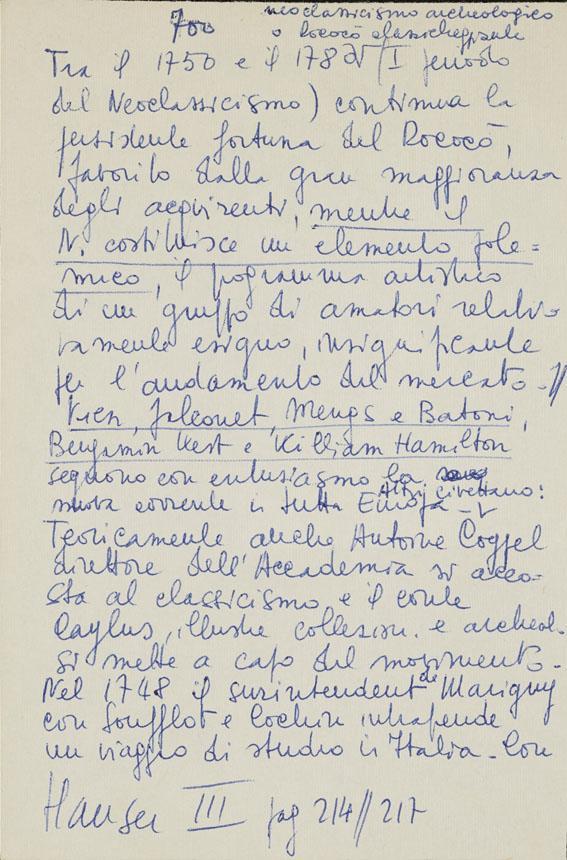 700 neoclassicismo archeologico
o Rococò classicheggiante
Tra il 1750 e il 1780 (I periodo
del Neoclassicismo) continua la
persistente fortuna del Rococò,
favorito dalla gran maggioranza
degli acquirenti, mentre il
N. costituisce un elemento pole=
mico, il programma artistico
di un gruppo di amatori relati-
vamente esiguo, insignificante
per l'andamento del mercato - //
Vien, Falconet, Mengs e Batoni,
Benjamin West e William Hamilton
seguono con entusiasmo la
nuova corrente in tutta Europa - Altri civettano:
Teoricamente anche Antoine Coypel
direttore dell'Accademia si acco-
sta al classicismo e il conte
Caylus, illustre collezion. e archeol.
si mette a capo del movimento -
Nel 1748 il surintendent de Marigny
con Soufflot e Cochin intraprende
un viaggio di studio in Italia - Con
Hauser III pag 214//217